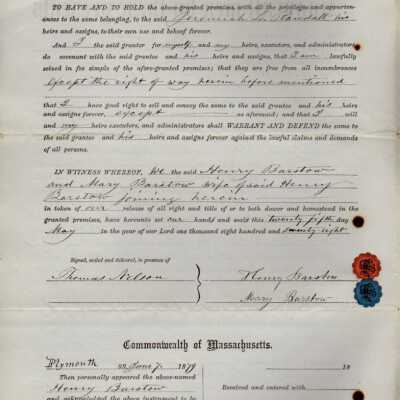 TO HAVE AND TO HOLD the above-granted premises, with all the privileges and appurten-
ances to the same belonging, to the said Jeremiah S. Randall his
heirs and assigns, to their own use and behoof forever.
And I the said grantor for myself and my heirs, executors, and administrators,
do covenant with the said grantee and his heirs and assigns, that I am lawfully
seized in fee simple of the afore-granted premises; that they are free from all incumbrances
except the right of way herein before mentioned
that I have good right to sell and convey the same to the said grantee and his heirs
and assigns forever, except as aforesaid; and that I will
and my heirs, executors, and administrators shall WARRANT AND DEFEND the same to
the said grantee and his heirs and assigns forever against the lawful claims and demands
of all persons.
IN WITNESS WHEREOF, We the said Henry Barstow
and Mary Barstow wife of said Henry
Barstow joining herein
in token of our release of all right and title of or to both dower and homestead in the
granted premises, have hereunto set our hands and seals this twenty fifth day
May in the year of our Lord one thousand eight hundred and seventy eight
Signed, sealed and delivered, in presence of
Thomas Nelson
Henry Barstow
Mary Barstow
Commonwealth of Massachusetts.
Plymouth ss June 7. 1879
18
Then personally appeared the above-named
Henry Barstow
Received and entered with
and acknowledged the above instrument to be